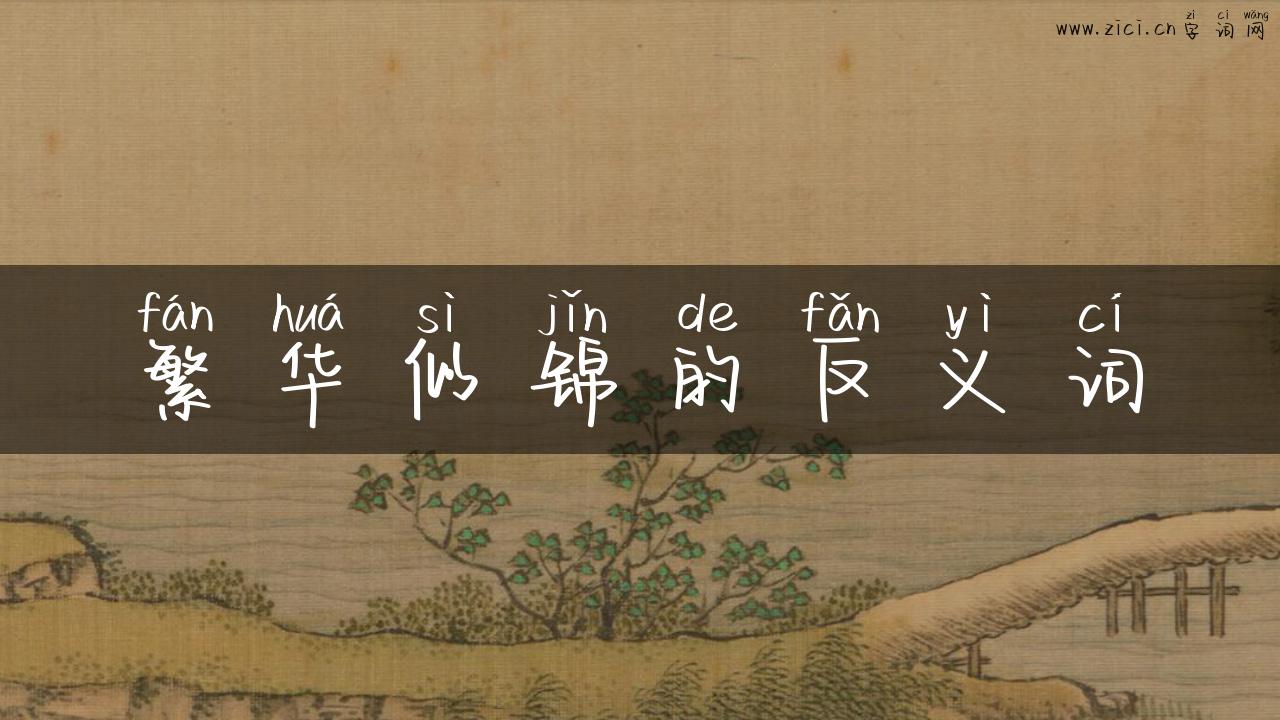 zì cí wǎng
www.zici.cn 字词网
fán huá sì jǐn de fǎn yì cí
繁华似锦的反义词